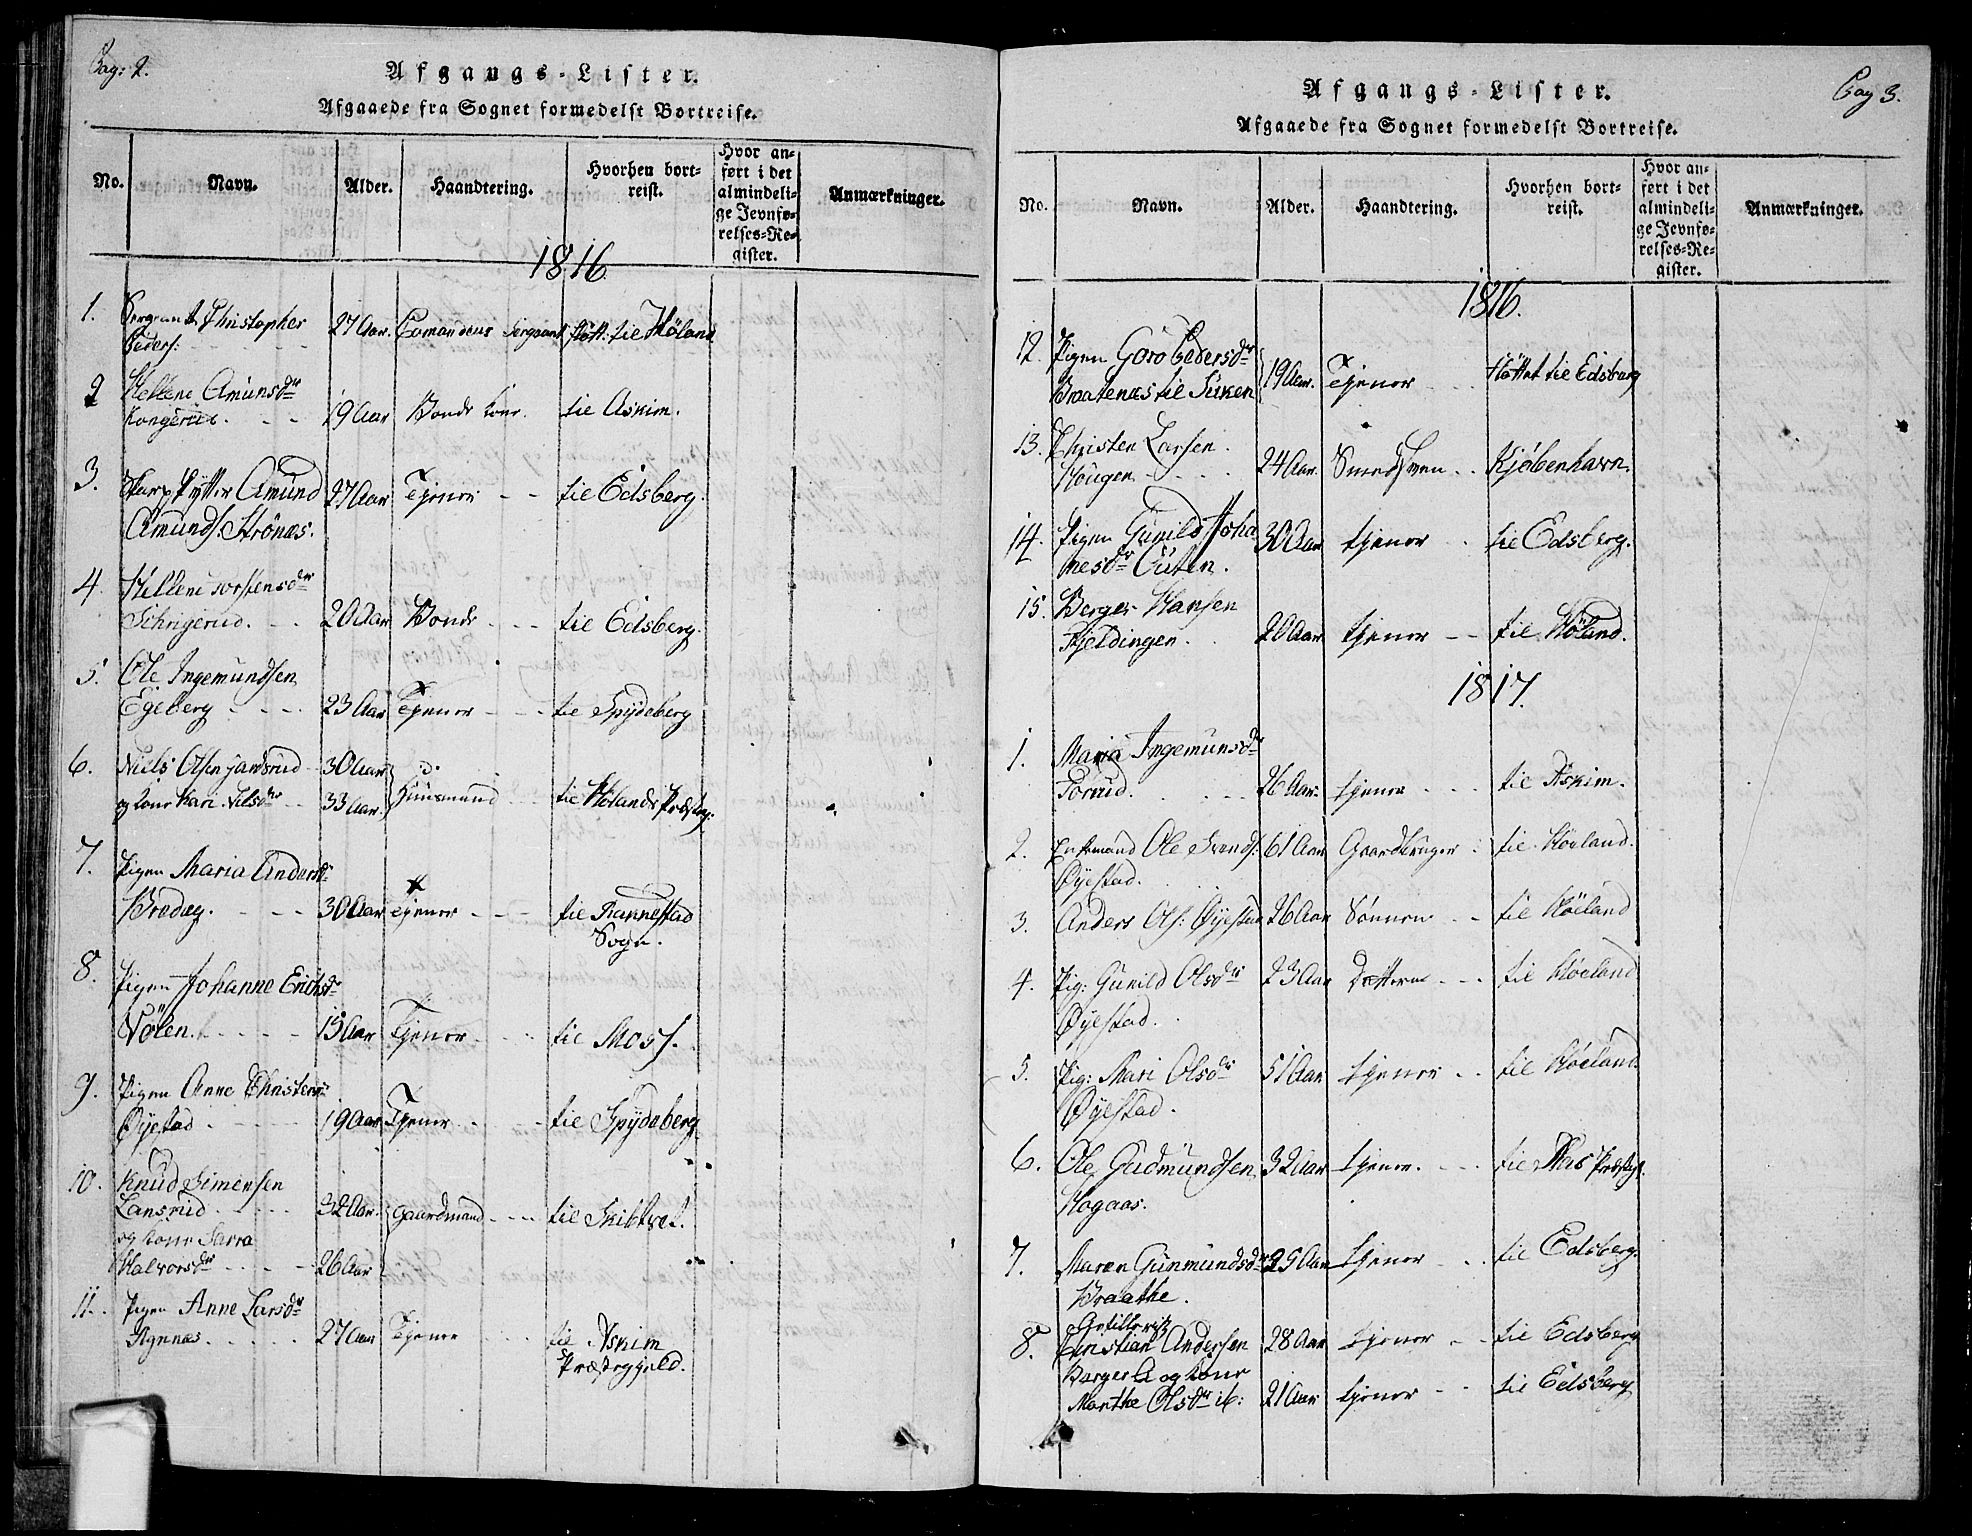 Pag: 2.
Afgangs-Lister.
Afgaaede fra Sognet formedelst Bortreise.
No. Navn. Alder. Haandtering. Hvorhen bort-reist. Hvor an-ført i det almindeli-ge Jevnfø-relses-Re-gister. Anmærkninger.
1816
1. Sergeant Christopher 27 Aar. Sergeant flött: til Höland
Peders:
2 Hellene Amunsdr
Kongerud. 19 Aar Bonde kone. til Askim.
3. Skarpskytter Amund 27 Aar Tjener til Edsberg.
Amunds. Strönæs.
4. Hellene Torstensdr
20 Aar Bonde til Edsberg.
5. Ole Ingemundsen
Egeberg 23 Aar Tjener til Spydeberg
6. Niels Olsen 30 Aar
og kone Kari Nilsdr 33 Aar. Huusmand til Hölands Præsteg:
7. Pigen Maria Andersdr
30 Aar Tjener til Rannestad
Sogn.
8. Pigen Johanne Erichsdr
Völen. 15 Aar Tjener til Moss.
9. Pigen Anne Christensdr
Øyestad 19 Aar Tjener til Spydeberg
10. Knud Simensen
32 Aar. Gaardmand til Skibtvet.
og kone Sarra
Halvorsdr 26 Aar
11. Pigen Anne Larsdr
27 Aar Tjener til Askim
Præstegjeld.
Pag 3.
Afgangs-Lister.
Afgaaede fra Sognet formedelst Bortreise.
No. Navn. Alder. Haandtering. Hvorhen bort-reist. Hvor an-ført i det almindeli-ge Jevnfø-relses-Re-gister. Anmærkninger.
1816.
12. Pigen Goro Pedersdr
Braatenæs til 19 Aar. Tjener flöttet til Edsberg
13. Christen Larsen
Hougen 24 Aar. Smedsvend Kjøbenhavn.
14. Pigen Gunild Joha 30 Aar tjener til Edsberg.
nesdr
15. Berger Hansen
Kjeldingen. 20 Aar tjener til Höland.
1817.
1. Maria Ingemunsdr
26 Aar. tjener til Askim.
2. Enkemand Ole Svends: 61 Aar Gaardbruger til Höeland.
Øyestad.
3. Anders Ols: Øyestad 26 Aar Sönnen til Höeland
4. Pig: Gunild Olsdr 23 Aar Datteren til Höeland
Øyestad.
5. Pig: Mari Olsdr 51 Aar tjener til Höeland.
Øyestad.
6. Ole Gudmundsen 32 Aar tjener. til Aas Præsteg:
Hogaas.
7. Maren Gunmundsdr 25 Aar tjener til Edsberg.
Braathe.
8. Artillerist
Christian Andersen 28 Aar tjener til Edsberg
Berger og kone
Marthe Olsdr ib: 21 Aar tjener til Edsberg